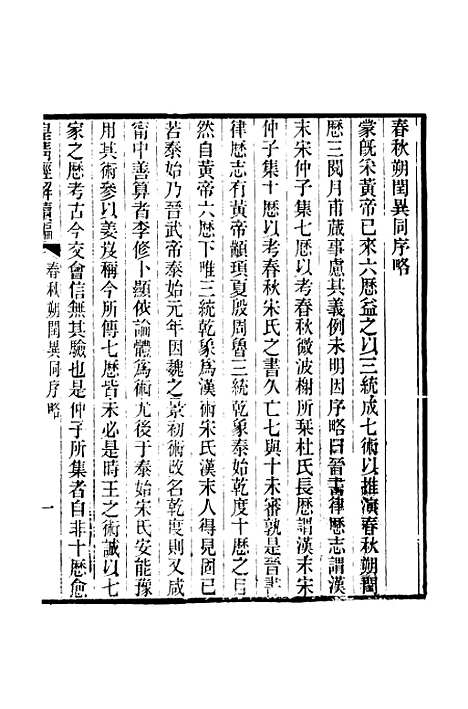 春秋朔閏異同序略
蒙旣釆黃帝已來六厯益之以三統成七術以推演春秋朔閏
厯三閱月甫蕆事慮其義例未明因序略曰晉書律厯志謂漢
末宋仲子集七厯以考春秋微波榭所栞杜氏長厯謂漢末宋
仲子集十厯以考春秋宋氏之書久亡七與十未審孰是晉書
律厯志有黃帝顓頊夏殷周魯三統乾象泰始乾度十厯之目
然自黃帝六厯下唯三統乾象爲漢術宋氏漢末人得見固已
若泰始乃晉武帝泰始元年因魏之景初術改名乾度則又咸
甯中善算者李修卜顯依論體爲術尤後于泰始宋氏安能豫
用其術參以姜岌稱今所傳七厯皆未必是時王之術誠以七
家之厯考古今交會信無其驗也是仲子所集者自非十厯愈
皇淸經解續編
春秋朔閏異同序略
一